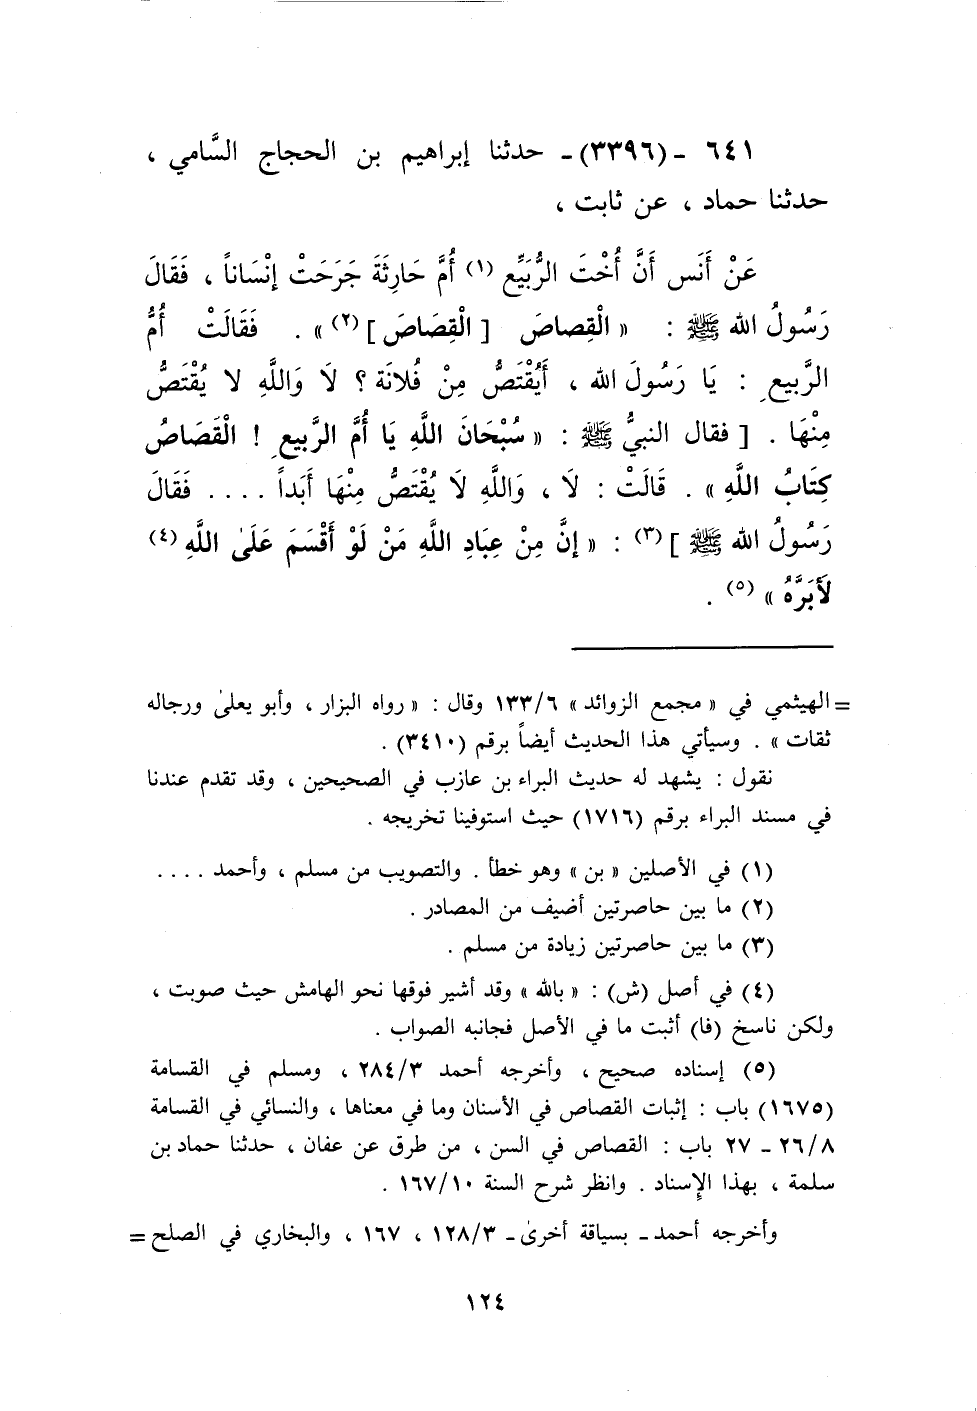 ٦٤١ - (٣٣٩٦) - حدثنا إبراهيم بن الحجاج السَّامي ،
حدثنا حماد ، عن ثابت ،
عَنْ أَنَس أَنَّ أُخْتَ الرُّبَيِّع (١) أُمَّ حَارِثَةَ جَرَحَتْ إِنْسَاناً ، فَقَالَ
رَسُولُ الله ﷺ : « الْقِصاصَ [ الْقِصَاصَ ] (٢) » . فَقَالَتْ أُمُّ
الرَّبيعِ : يَا رَسُولَ الله ، أَيُقْتَصُّ مِنْ فُلانَة ؟ لَا وَاللَّهِ لا يُقْتَصُّ
مِنْهَا . [ فقال النبيُّ ﷺ : « سُبْحَانَ اللَّهِ يَا أُمَّ الرَّبيعِ ! الْقَصَاصُ
كِتَابُ اللَّهِ » . قَالَتْ : لَا ، وَاللَّهِ لَا يُقْتَصُّ مِنْهَا أَبَداً .... فَقَالَ
رَسُولُ الله ﷺ ] (٣) : « إِنَّ مِنْ عِبَادِ اللَّهِ مَنْ لَوْ أَقْسَمَ عَلَىٰ اللَّهِ (٤)
لَأَبَرَّهُ » (٥) .
= الهيثمي في « مجمع الزوائد » ١٣٣/٦ وقال : « رواه البزار ، وأبو يعلىٰ ورجاله
ثقات » . وسيأتي هذا الحديث أيضاً برقم (٣٤١٠) .
نقول : يشهد له حديث البراء بن عازب في الصحيحين ، وقد تقدم عندنا
في مسند البراء برقم (١٧١٦) حيث استوفينا تخريجه .
(١) في الأصلين « بن » وهو خطأ . والتصويب من مسلم ، وأحمد ....
(٢) ما بين حاصرتين أضيف من المصادر .
(٣) ما بين حاصرتين زيادة من مسلم .
(٤) في أصل (ش) : « بالله » وقد أشير فوقها نحو الهامش حيث صوبت ،
ولكن ناسخ (فا) أثبت ما في الأصل فجانبه الصواب .
(٥) إسناده صحيح ، وأخرجه أحمد ٢٨٤/٣ ، ومسلم في القسامة
(١٦٧٥) باب : إثبات القصاص في الأسنان وما في معناها ، والنسائي في القسامة
٢٦/٨ - ٢٧ باب : القصاص في السن ، من طرق عن عفان ، حدثنا حماد بن
سلمة ، بهذا الإسناد . وانظر شرح السنة ١٦٧/١٠ .
وأخرجه أحمد - بسياقة أخرىٰ - ١٢٨/٣ ، ١٦٧ ، والبخاري في الصلح =
١٢٤